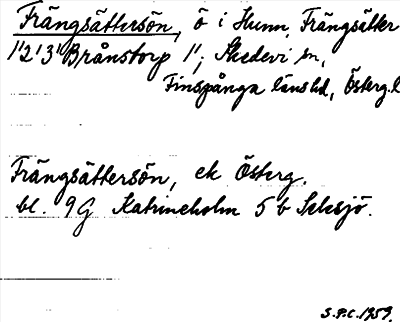 Frängsättersön, ö i Hunn, Frängsätter
1'2'3' Brånstorp 1', Skedevi sn,
Finspånga länshd, Österg.l
Frängsättersön, ek Österg.
bl. 9G Katrineholm 5 b Selesjö.
S.P.C. 1959.